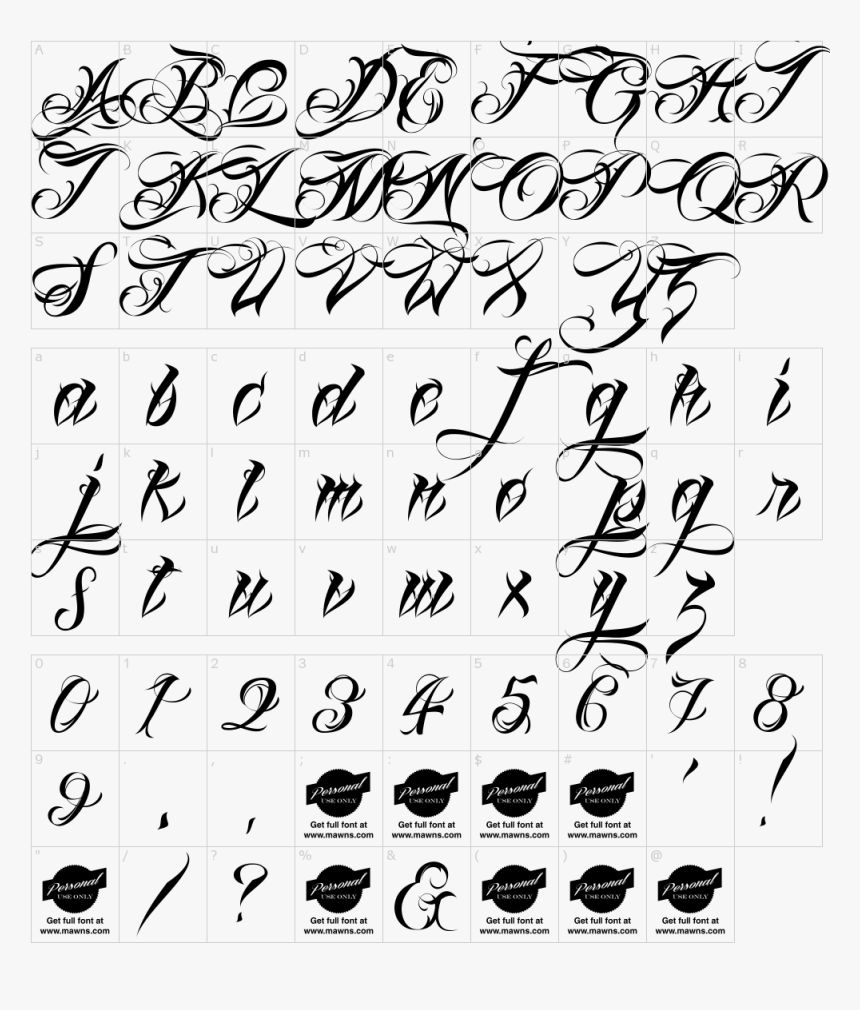 A B C D E F G H I
A B C D E F G H I
J K L M N O P Q R
J K L M N O P Q R
S T U V W X Y Z
S T U V W X Y Z
a b c d e f g h i
a b c d e f g h i
j k l m n o p q r
j k l m n o p q r
s t u v w x y z
s t u v w x y z
0 1 2 3 4 5 6 7 8
0 1 2 3 4 5 6 7 8
9 . , ; : $ # ' !
9 . , ' !
Personal Personal Personal Personal
USE ONLY USE ONLY USE ONLY USE ONLY
Get full font at Get full font at Get full font at Get full font at
www.mawns.com www.mawns.com www.mawns.com www.mawns.com
" / ? % & ( ) @
/ ? &
Personal Personal Personal Personal Personal
USE ONLY USE ONLY USE ONLY USE ONLY USE ONLY
Get full font at Get full font at Get full font at Get full font at Get full font at
www.mawns.com www.mawns.com www.mawns.com www.mawns.com www.mawns.com